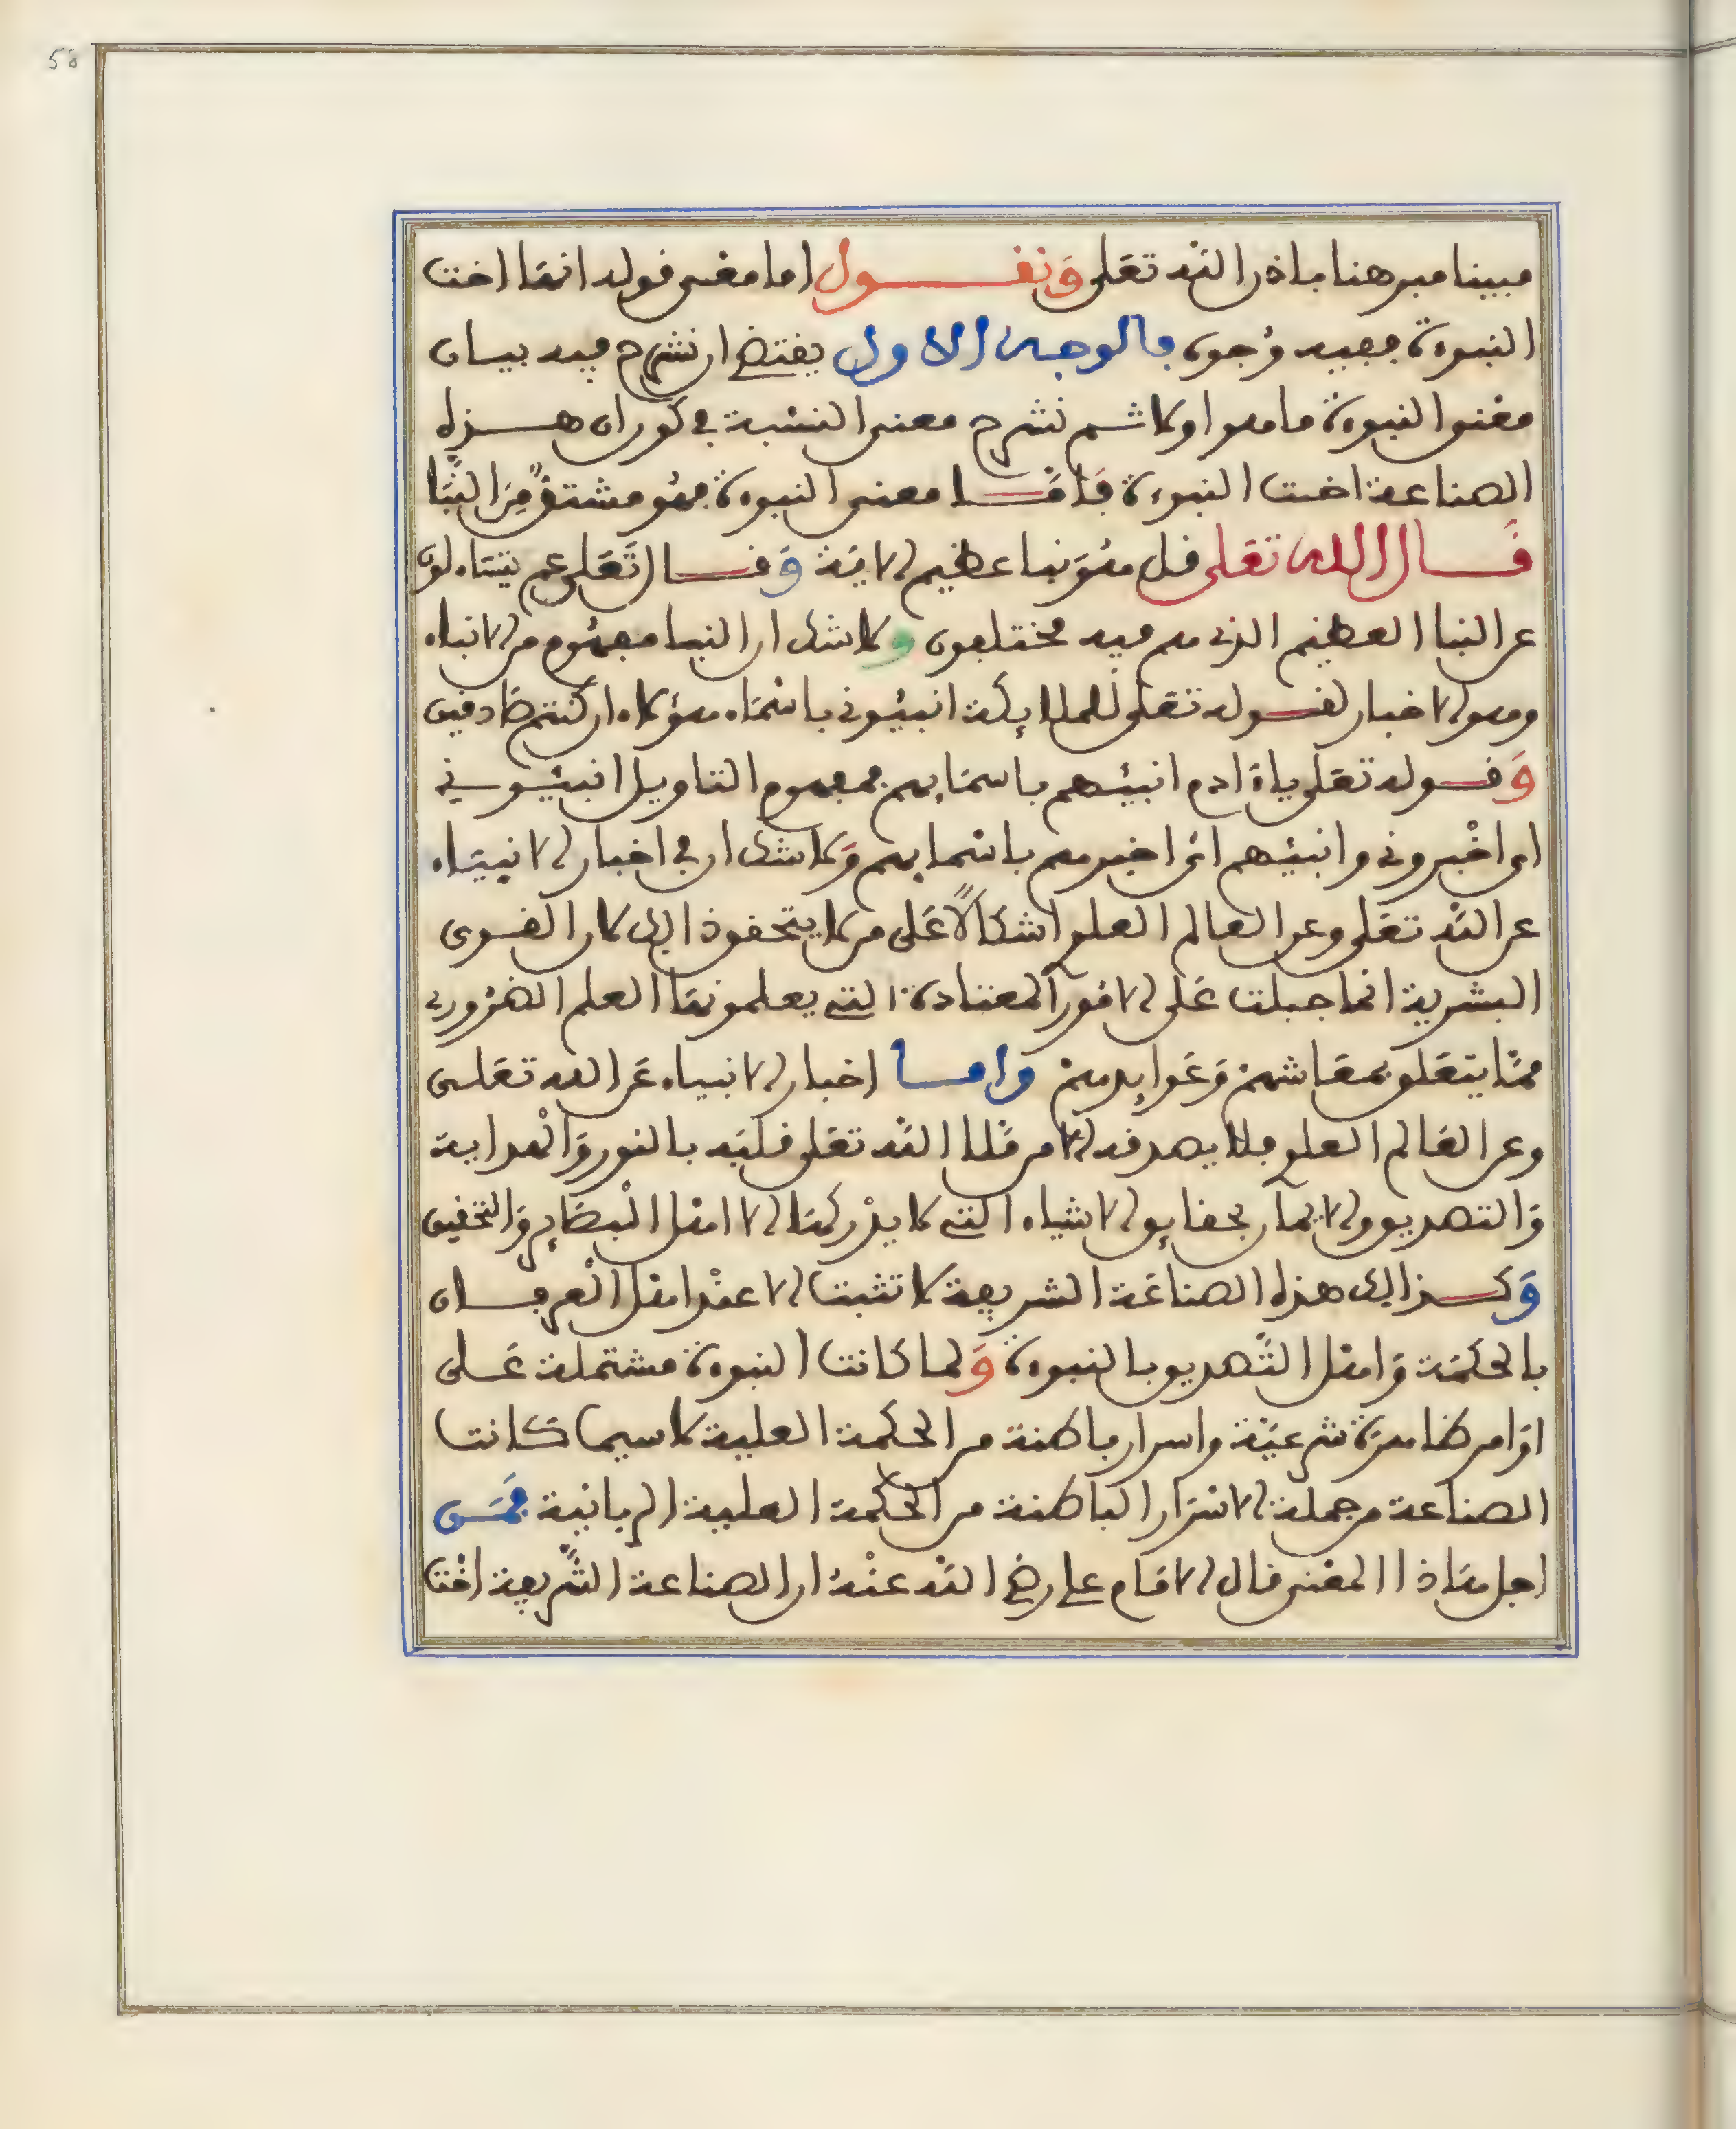 58
مبينا مبرهنا باذن الله تعلى ونقول اما معنى قوله انها اخت
النبوة ففيه وجوه فالوجه الاول يقتضي ان نشرح فيه بيان
معنى النبوة ما هو اولا ثم نشرح معنى النسبة في كون ان هذه
الصناعة اخت النبوة فاما معنى النبوة فهو مشتق من النبإ
قال الله تعلى قل هو نبا عظيم الاية وقال تعلى عم يتساءلون
عن النبا العظيم الذي هم فيه مختلفون ولا شك ان النبا مفهوم من الانباء
وهو الاخبار لقوله تعلى للملائكة انبئوني باسماء هؤلاء ان كنتم صادقين
وقوله تعلى ياءادم انبئهم باسمائهم فمفهوم التاويل انبئوني
اي اخبروني وانبئهم اي اخبرهم باسمائهم ولا شك ان في اخبار الانبياء
عن الله تعلى وعن العالم العلوي اشكالا على من لا يتحقق ذالك لان القوى
البشرية انما جبلت على الامور المعتادة التي يعلمونها العلم الضروري
مما يتعلق بمعاشهن وعوايدهن واما اخبار الانبياء عن الله تعلى
وعن العالم العلوي فلا يصدقه الا من ملا الله تعلى قلبه بالنور والهداية
والتصديق والايمان بحقايق الاشياء التي لا يدركها الا اهل البصاير والتحقيق
وكذالك هذه الصناعة الشريفة لا تثبت الا عند اهل العرفان
بالحكمة واهل التصديق بالنبوة ولما كانت النبوة مشتملة على
اوامر ظاهرة شرعية واسرار باطنة من الحكمة العلية لا سيما كانت
الصناعة من جملة الاسرار الباطنة من الحكمة العلية الربانية فمن
اجل هاذا المعنى قال الامام علي رضي الله عنه ان الصناعة الشريفة اخت